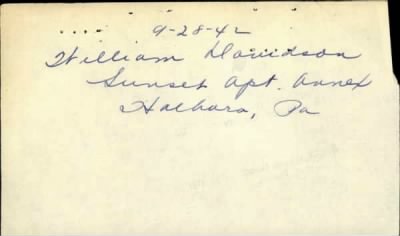 9-28-42
William Davidson
Sunset Apt. Annex
Hatboro, Pa